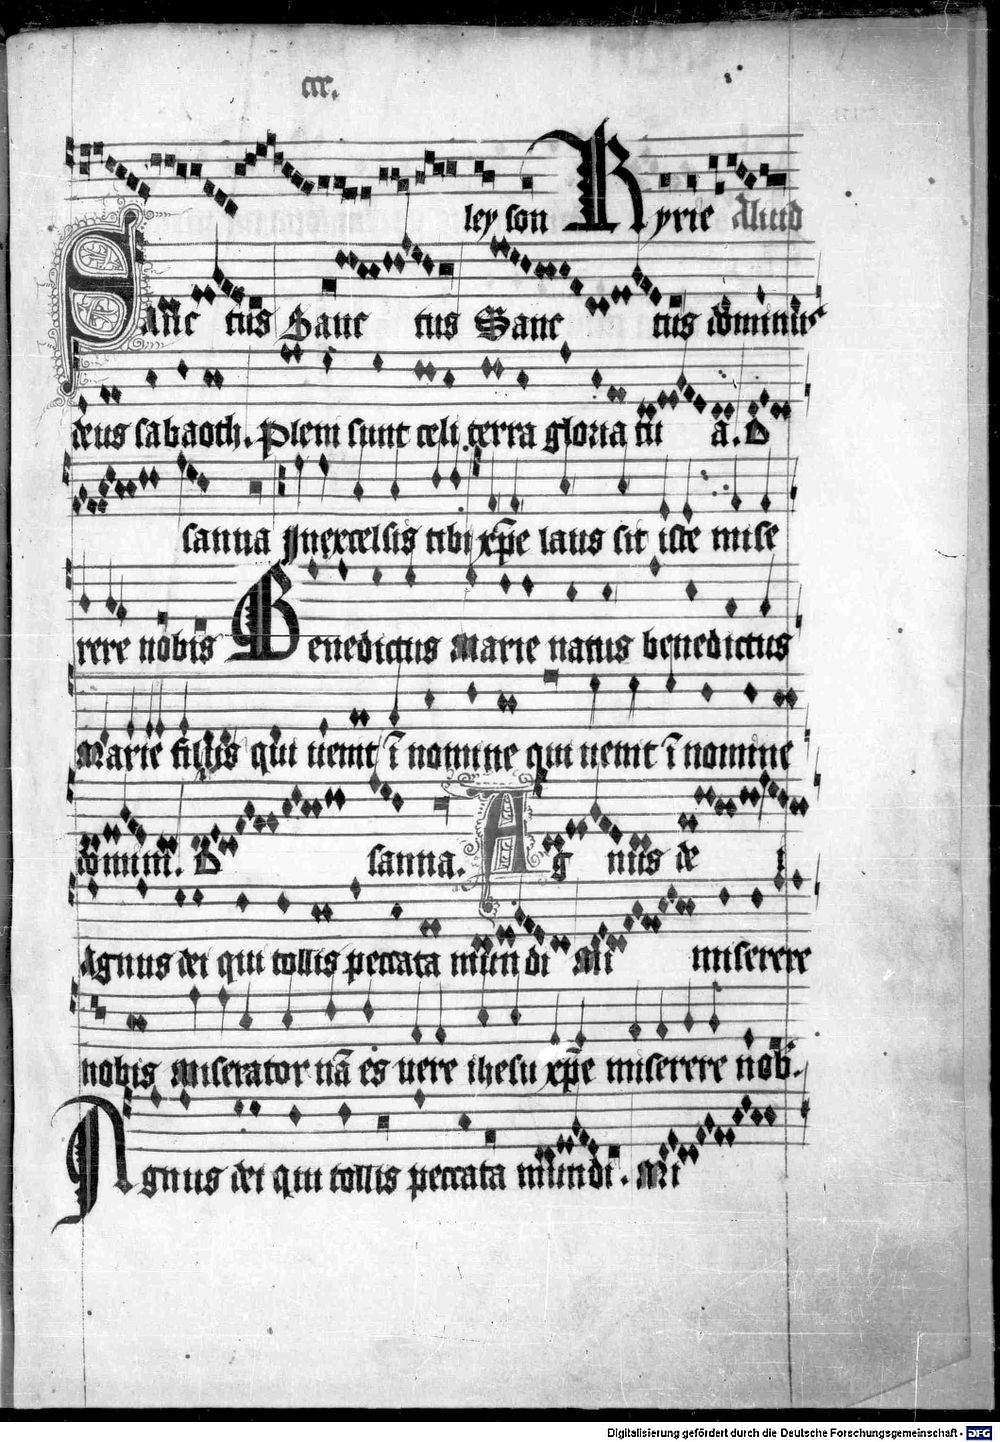 ccc.
ley son Kyrie Aliud
Sanc tus Sanc tus Sanc tus dominus
deus sabaoth. Pleni sunt celi terra gloria tu a. O
sanna Inexcelsis tibi xp̄e laus sit iste mise
rere nobis Benedictus Marie natus benedictus
Marie filius qui uenit ī nomine qui uenit ī nomine
domini. O sanna. Ag nus de i
Agnus dei qui tollis peccata mun di Mi miserere
nobis Miserator nā es uere ihesu xp̄e miserere nob.
Agnus dei qui tollis peccata mundi. Mi
Digitalisierung gefördert durch die Deutsche Forschungsgemeinschaft - DFG